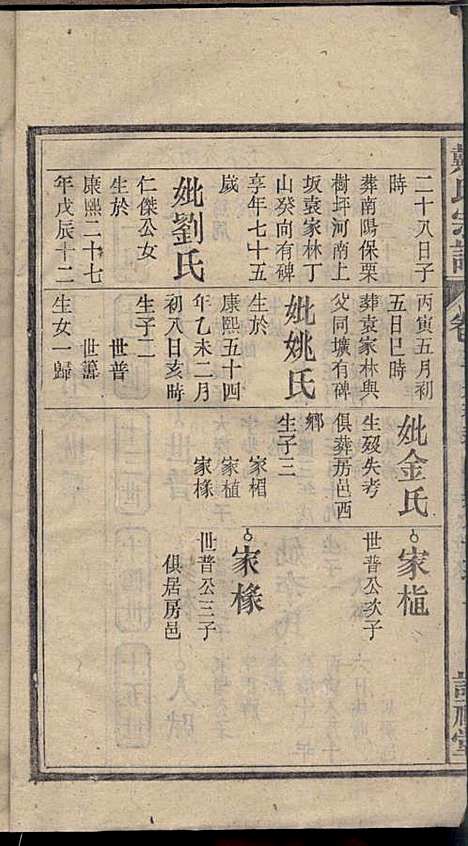 戴氏宗譜
卷
二十八日子
時
葬南陽保栗
樹坪河南上
坂袁家林丁
山癸向有碑
享年七十五
歲
妣劉氏
仁傑公女
生於
康熙二十七
年戊辰十二
丙寅五月初
五日巳時
葬袁家林與
父同壙有碑
妣姚氏
生於
康熙五十四
年乙未二月
初八日亥時
生子二
世普
世
生女一歸
妣金氏
生歿失考
俱葬房邑西
鄉
生子三
家楣
家植
家椽
家植
世普公次子
家椽
世普公三子
俱居房邑